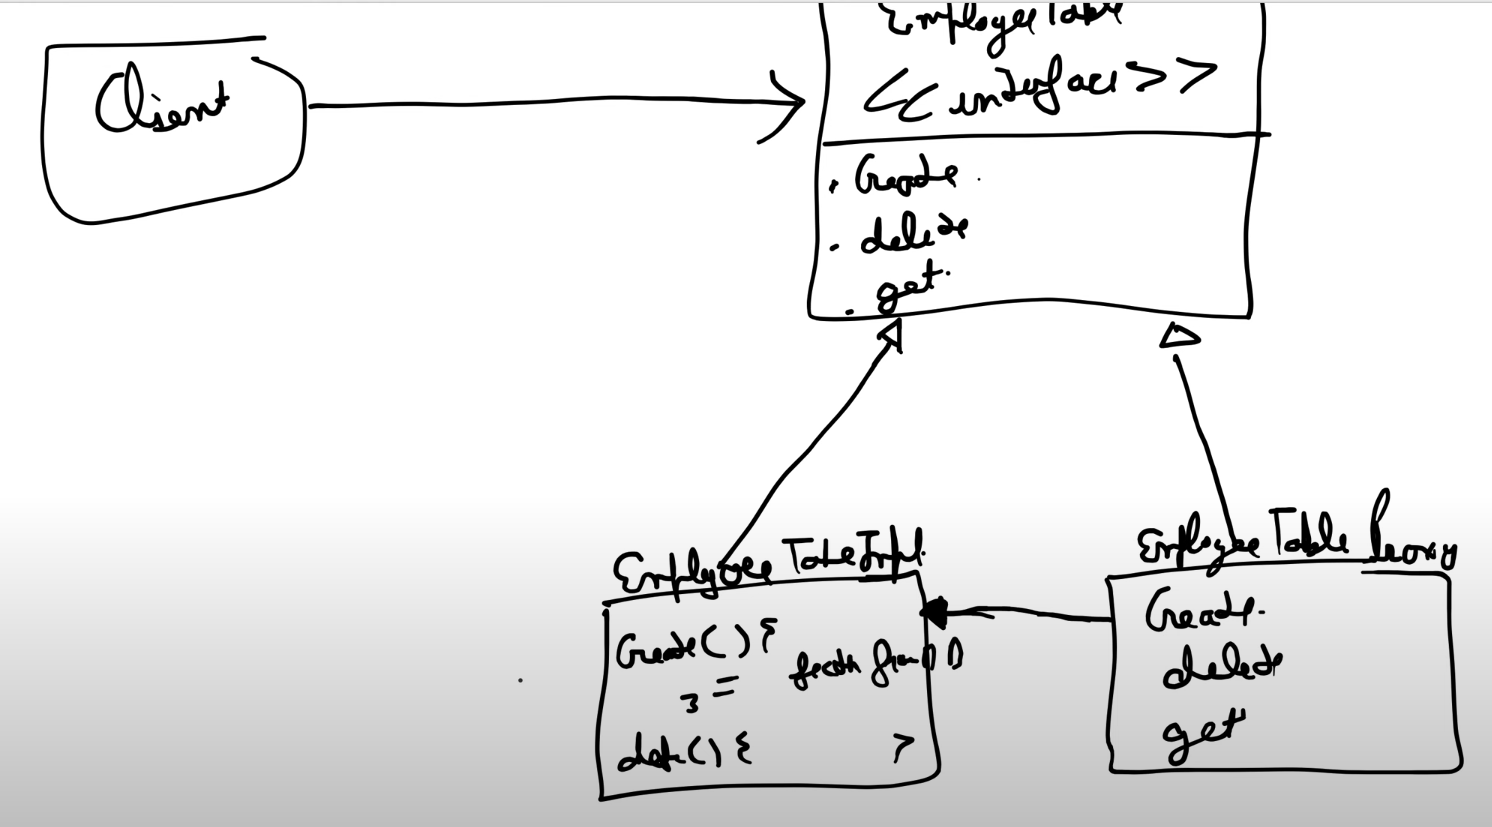 Client
EmployeeTable
<<interface>>
. Create.
. delete
. get.
Employee Table Impl.
Create() {
}
delete() { }
Employee Table Proxy
Create.
delete
get